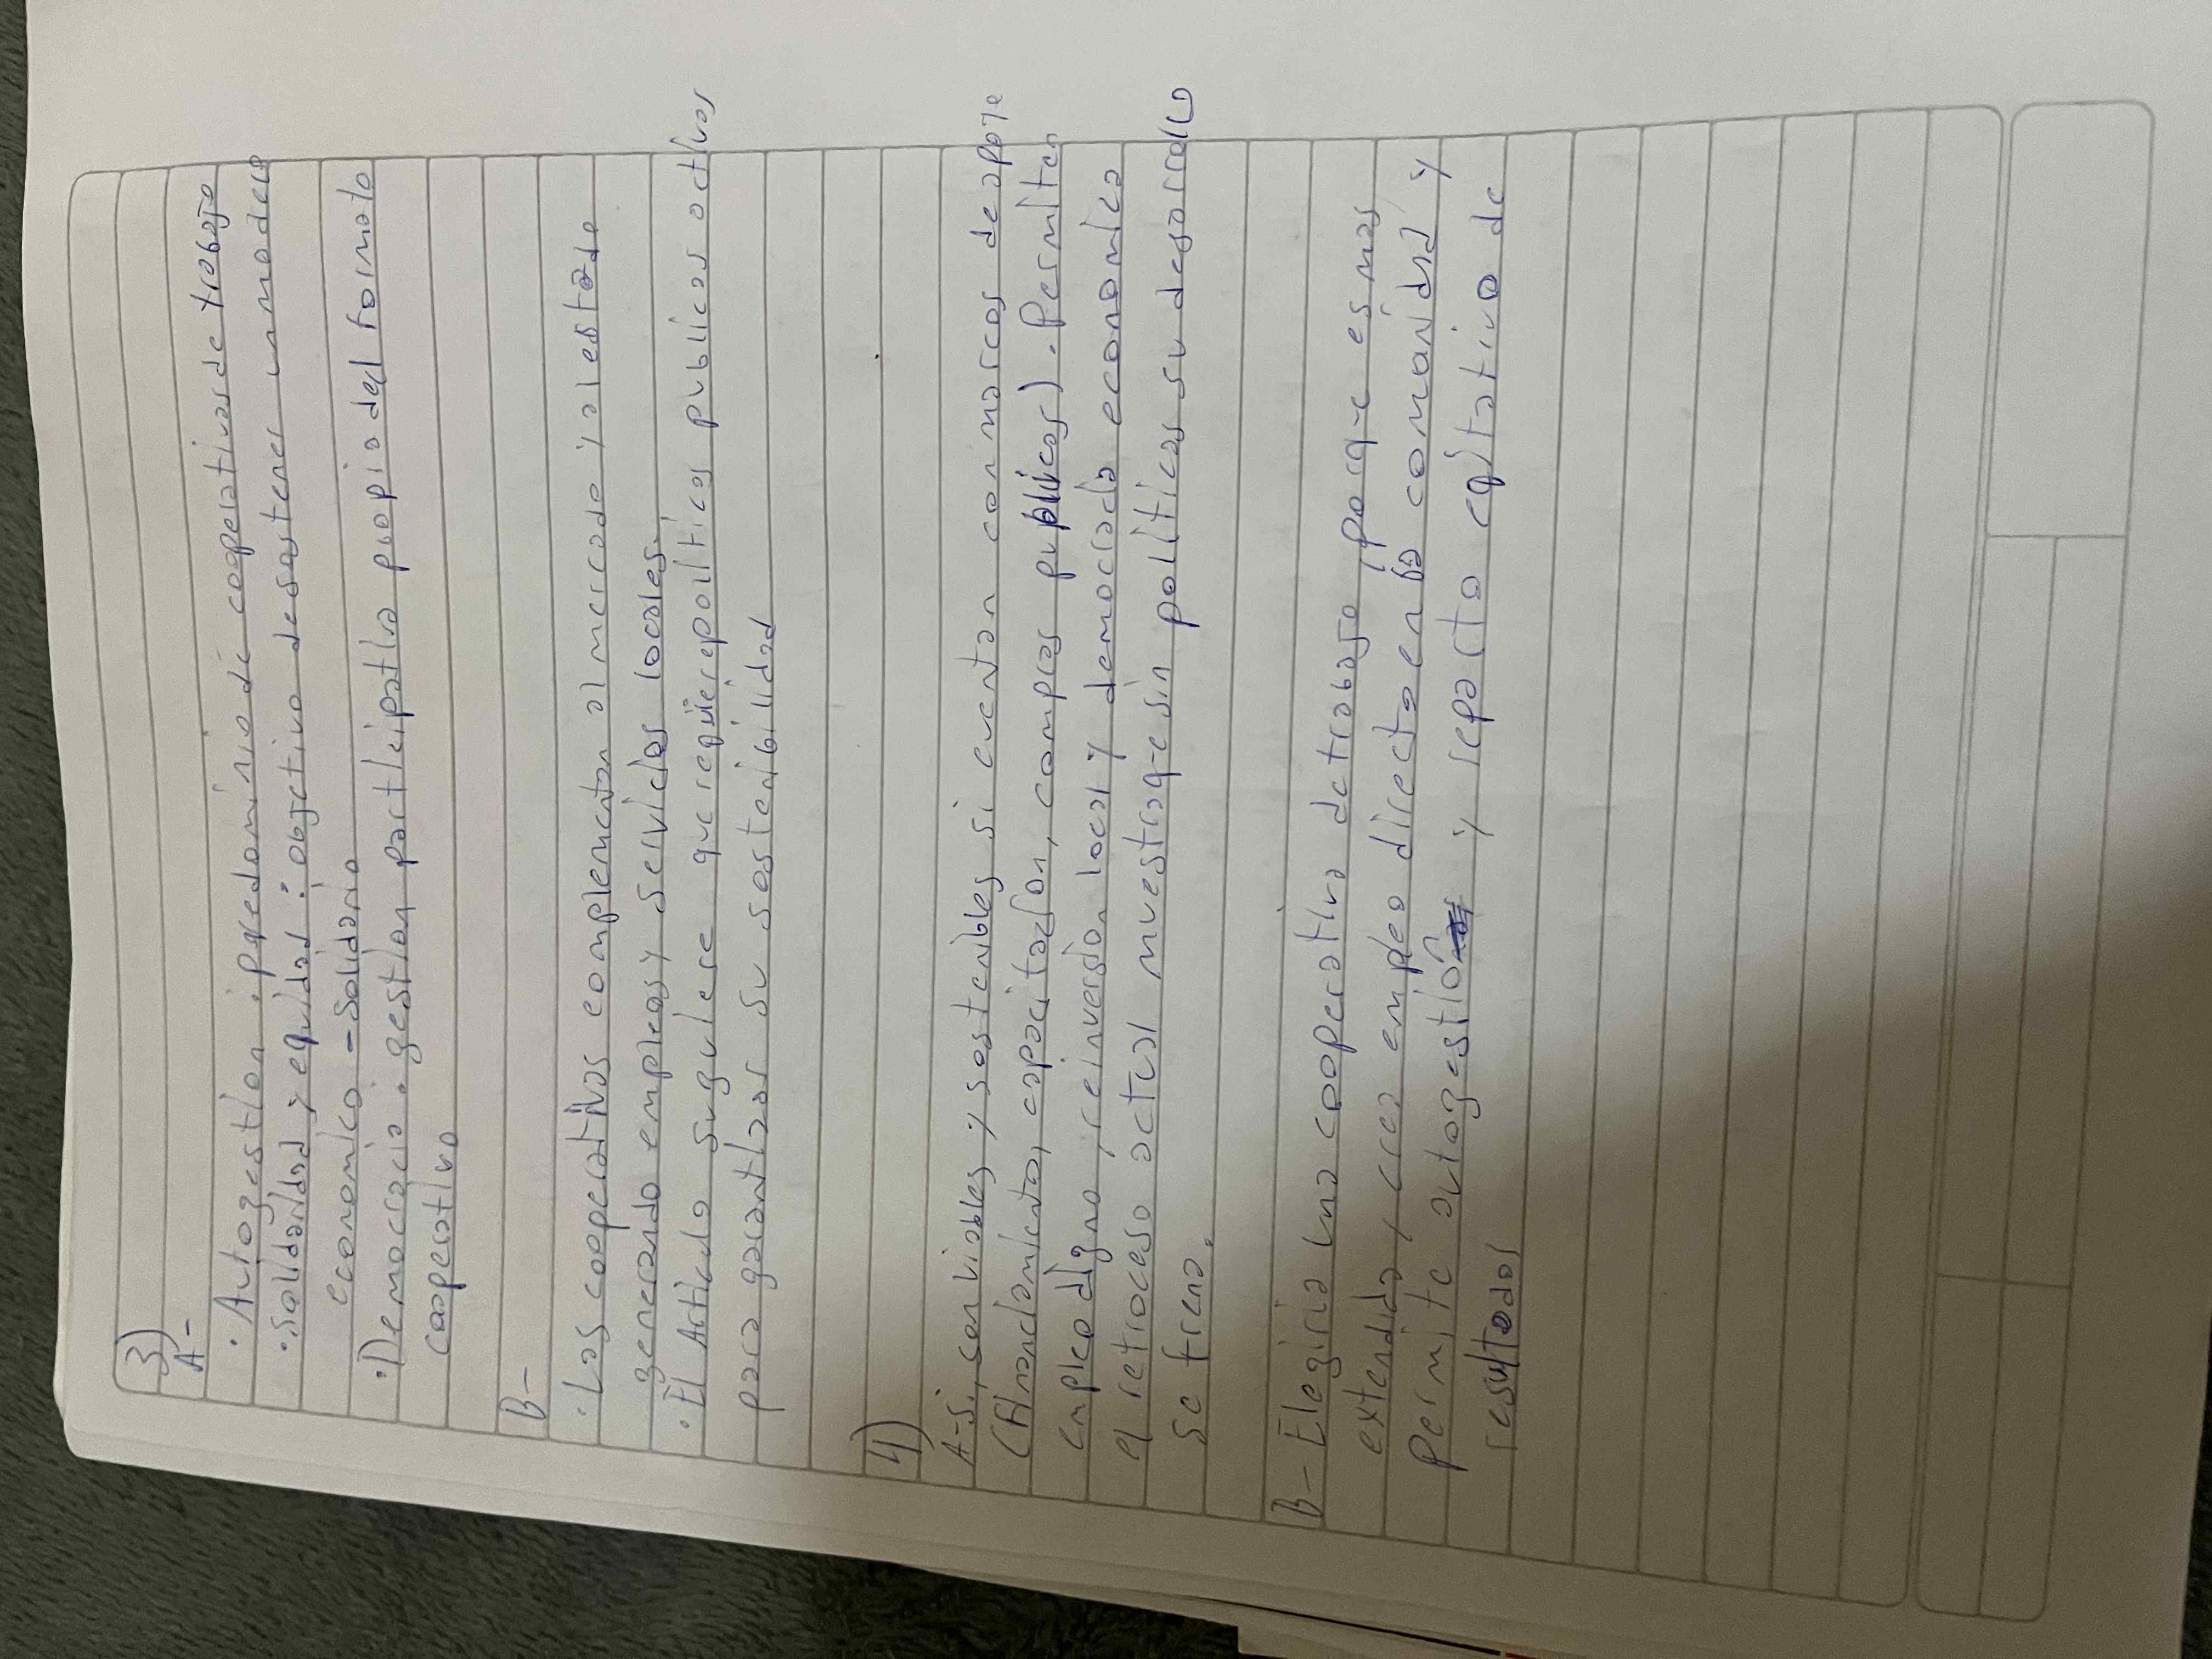 3)
A-
· Autogestion : predominio de cooperativas de trabajo
· Solidaridad y equidad : objetivo de sostener un modelo
economico - Solidario
· Democracia : gestion participativa propio del formato
cooperativo
B-
· Las cooperativas complementan al mercado y al estado
generando empleos y servicios locales.
· El Articulo sugiere que requiere politicas publicas activas
para garantizar su sostenibilidad
4)
A- Si, son viables y sostenibles si cuentan con marcos de apoyo
(financiamiento, capacitacion, compras publicas). Permiten
empleo digno, reinversion local y democracia economica
el retroceso actual muestra que sin politicas su desarrollo
se frena.
B- Elegiria una cooperativa de trabajo, porque es mas
extendida, crea empleo directo en la comunidad y
permite autogestión y reparto equitativo de
resultados